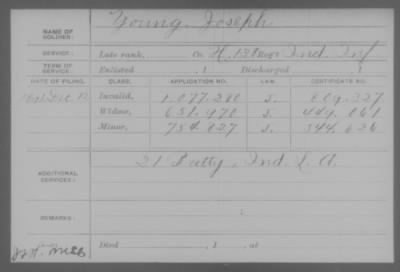 NAME OF SOLDIER: Young, Joseph
SERVICE: Late rank, Co. H, 13 Reg't Ind. Inf
TERM OF SERVICE: Enlisted , 1 Discharged , 1
DATE OF FILING. CLASS. APPLICATION NO. LAW. CERTIFICATE NO.
Dec. 12 Invalid, 1.077.280 809.327
Widow, 651.970 449.061
Minor, 754.827 544.626
ADDITIONAL SERVICES: 21 Batty, Ind. L. A.
REMARKS:
Died , 1 , at